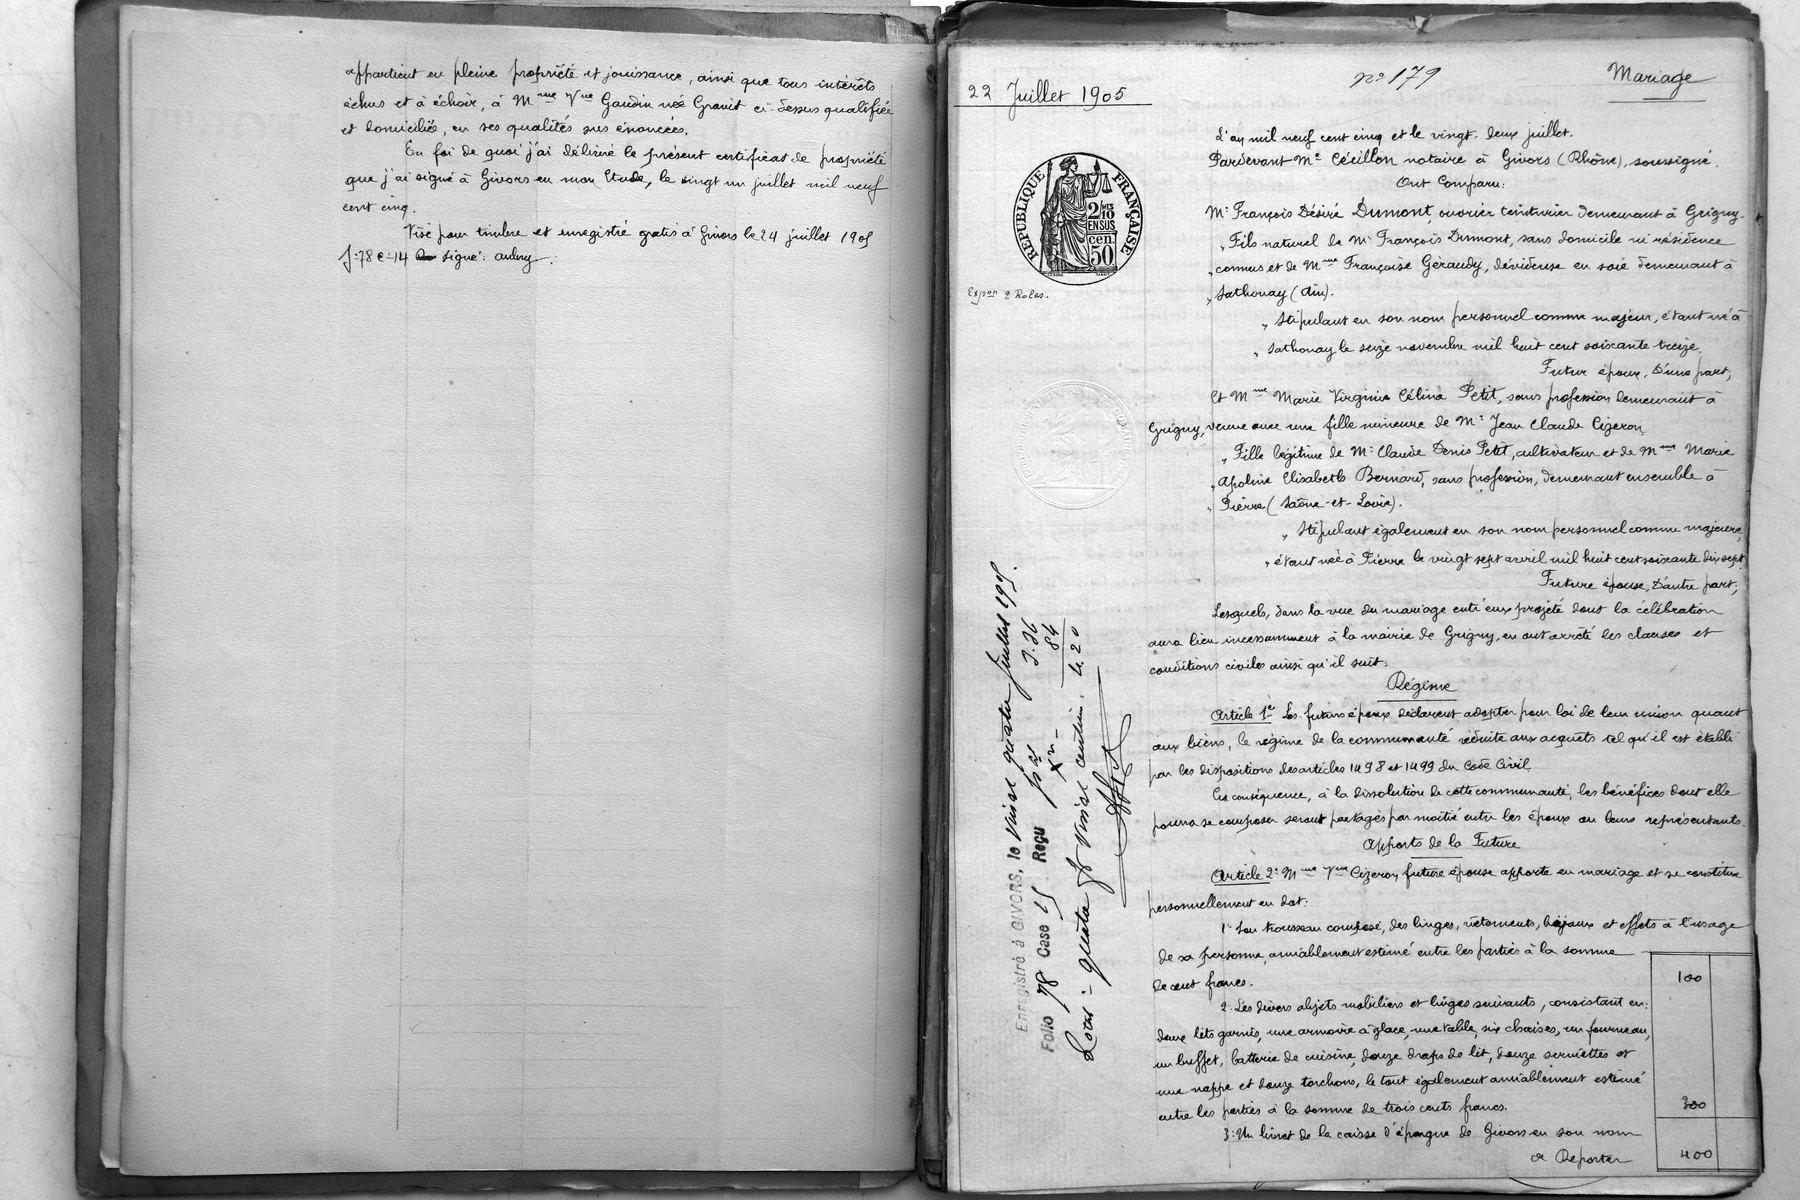 appartient en pleine propriété et jouissance, ainsi que tous intérêts
échus et à échoir, à Mme Vve Gaudin née Granit ci-dessus qualifiée
et domiciliée, en ses qualités sus énoncées.
En foi de quoi j'ai délivré le présent certificat de propriété
que j'ai signé à Givors en mon Etude, le vingt un juillet mil neuf
cent cinq.
Visé pour timbre et enregistré gratis à Givors le 24 juillet 1905
f: 78 C: 14 signé: aubry.
22 Juillet 1905
no 179
Mariage
RÉPUBLIQUE FRANÇAISE
2/10 MES
EN SUS
50 cen.
Expon 2 Roles.
L'an mil neuf cent cinq et le vingt-deux juillet.
Pardevant Me Céeillon notaire à Givors (Rhône), soussigné.
Ont Comparu:
Mr François Désiré Dumont, ouvrier teinturier demeurant à Grigny.
„ Fils naturel de Mr François Dumont, sans domicile ni résidence
„ connus et de Mme Françoise Géraudy, dévideuse en soie demeurant à
„ Sathonay (Ain).
„ Stipulant en son nom personnel comme majeur, étant né à
„ Sathonay le seize novembre mil huit cent soixante treize.
Futur époux, D'une part,
Et Mme Marie Virginie Célina Petit, sans profession demeurant à
Grigny, veuve avec une fille mineure de Mr Jean Claude Cizeron
„ Fille légitime de Mr Claude Denis Petit, cultivateur et de Mme Marie
„ Apoline Elisabeth Bernard, sans profession, demeurant ensemble à
„ Pierre (Saône-et-Loire).
„ Stipulant également en son nom personnel comme majeure,
„ étant née à Pierre le vingt sept avril mil huit cent soixante dix sept
Future épouse, D'autre part,
Lesquels, dans la vue du mariage entr'eux projeté dont la célébration
aura lieu incessamment à la mairie de Grigny, en ont arrêté les clauses et
conditions civiles ainsi qu'il suit.
Régime
Article 1e Les futurs époux déclarent adopter pour loi de leur union quant
aux biens, le régime de la communauté réduite aux acquêts tel qu'il est établi
par les dispositions des articles 1498 et 1499 du Code Civil.
En conséquence, à la dissolution de cette communauté, les bénéfices dont elle
pourra se composer seront partagés par moitié entre les époux ou leurs représentants.
Apports de la Future
Article 2: Mme Vve Cizeron, future épouse apporte en mariage et se constitue
personnellement en dot:
1: Son trousseau composé, des linges, vêtements, bijoux et effets à l'usage
de sa personne, amiablement estimé entre les parties à la somme
de cent francs. 100
2: Les divers objets mobiliers et linges suivants, consistant en:
deux lits garnis, une armoire à glace, une table, six chaises, un fourneau,
un buffet, batterie de cuisine, douze draps de lit, douze serviettes et
une nappe et douze torchons, le tout également amiablement estimé
entre les parties à la somme de trois cents francs. 300
3: Un livret de la caisse d'épargne de Givors en son nom
A Reporter 400
Enregistré à GIVORS, le Vingt quatre Juillet 1905.
Folio 78 Case 15 Reçu pal 3.36
Xes 84
Total: quatre fr vingt centim. 4.20